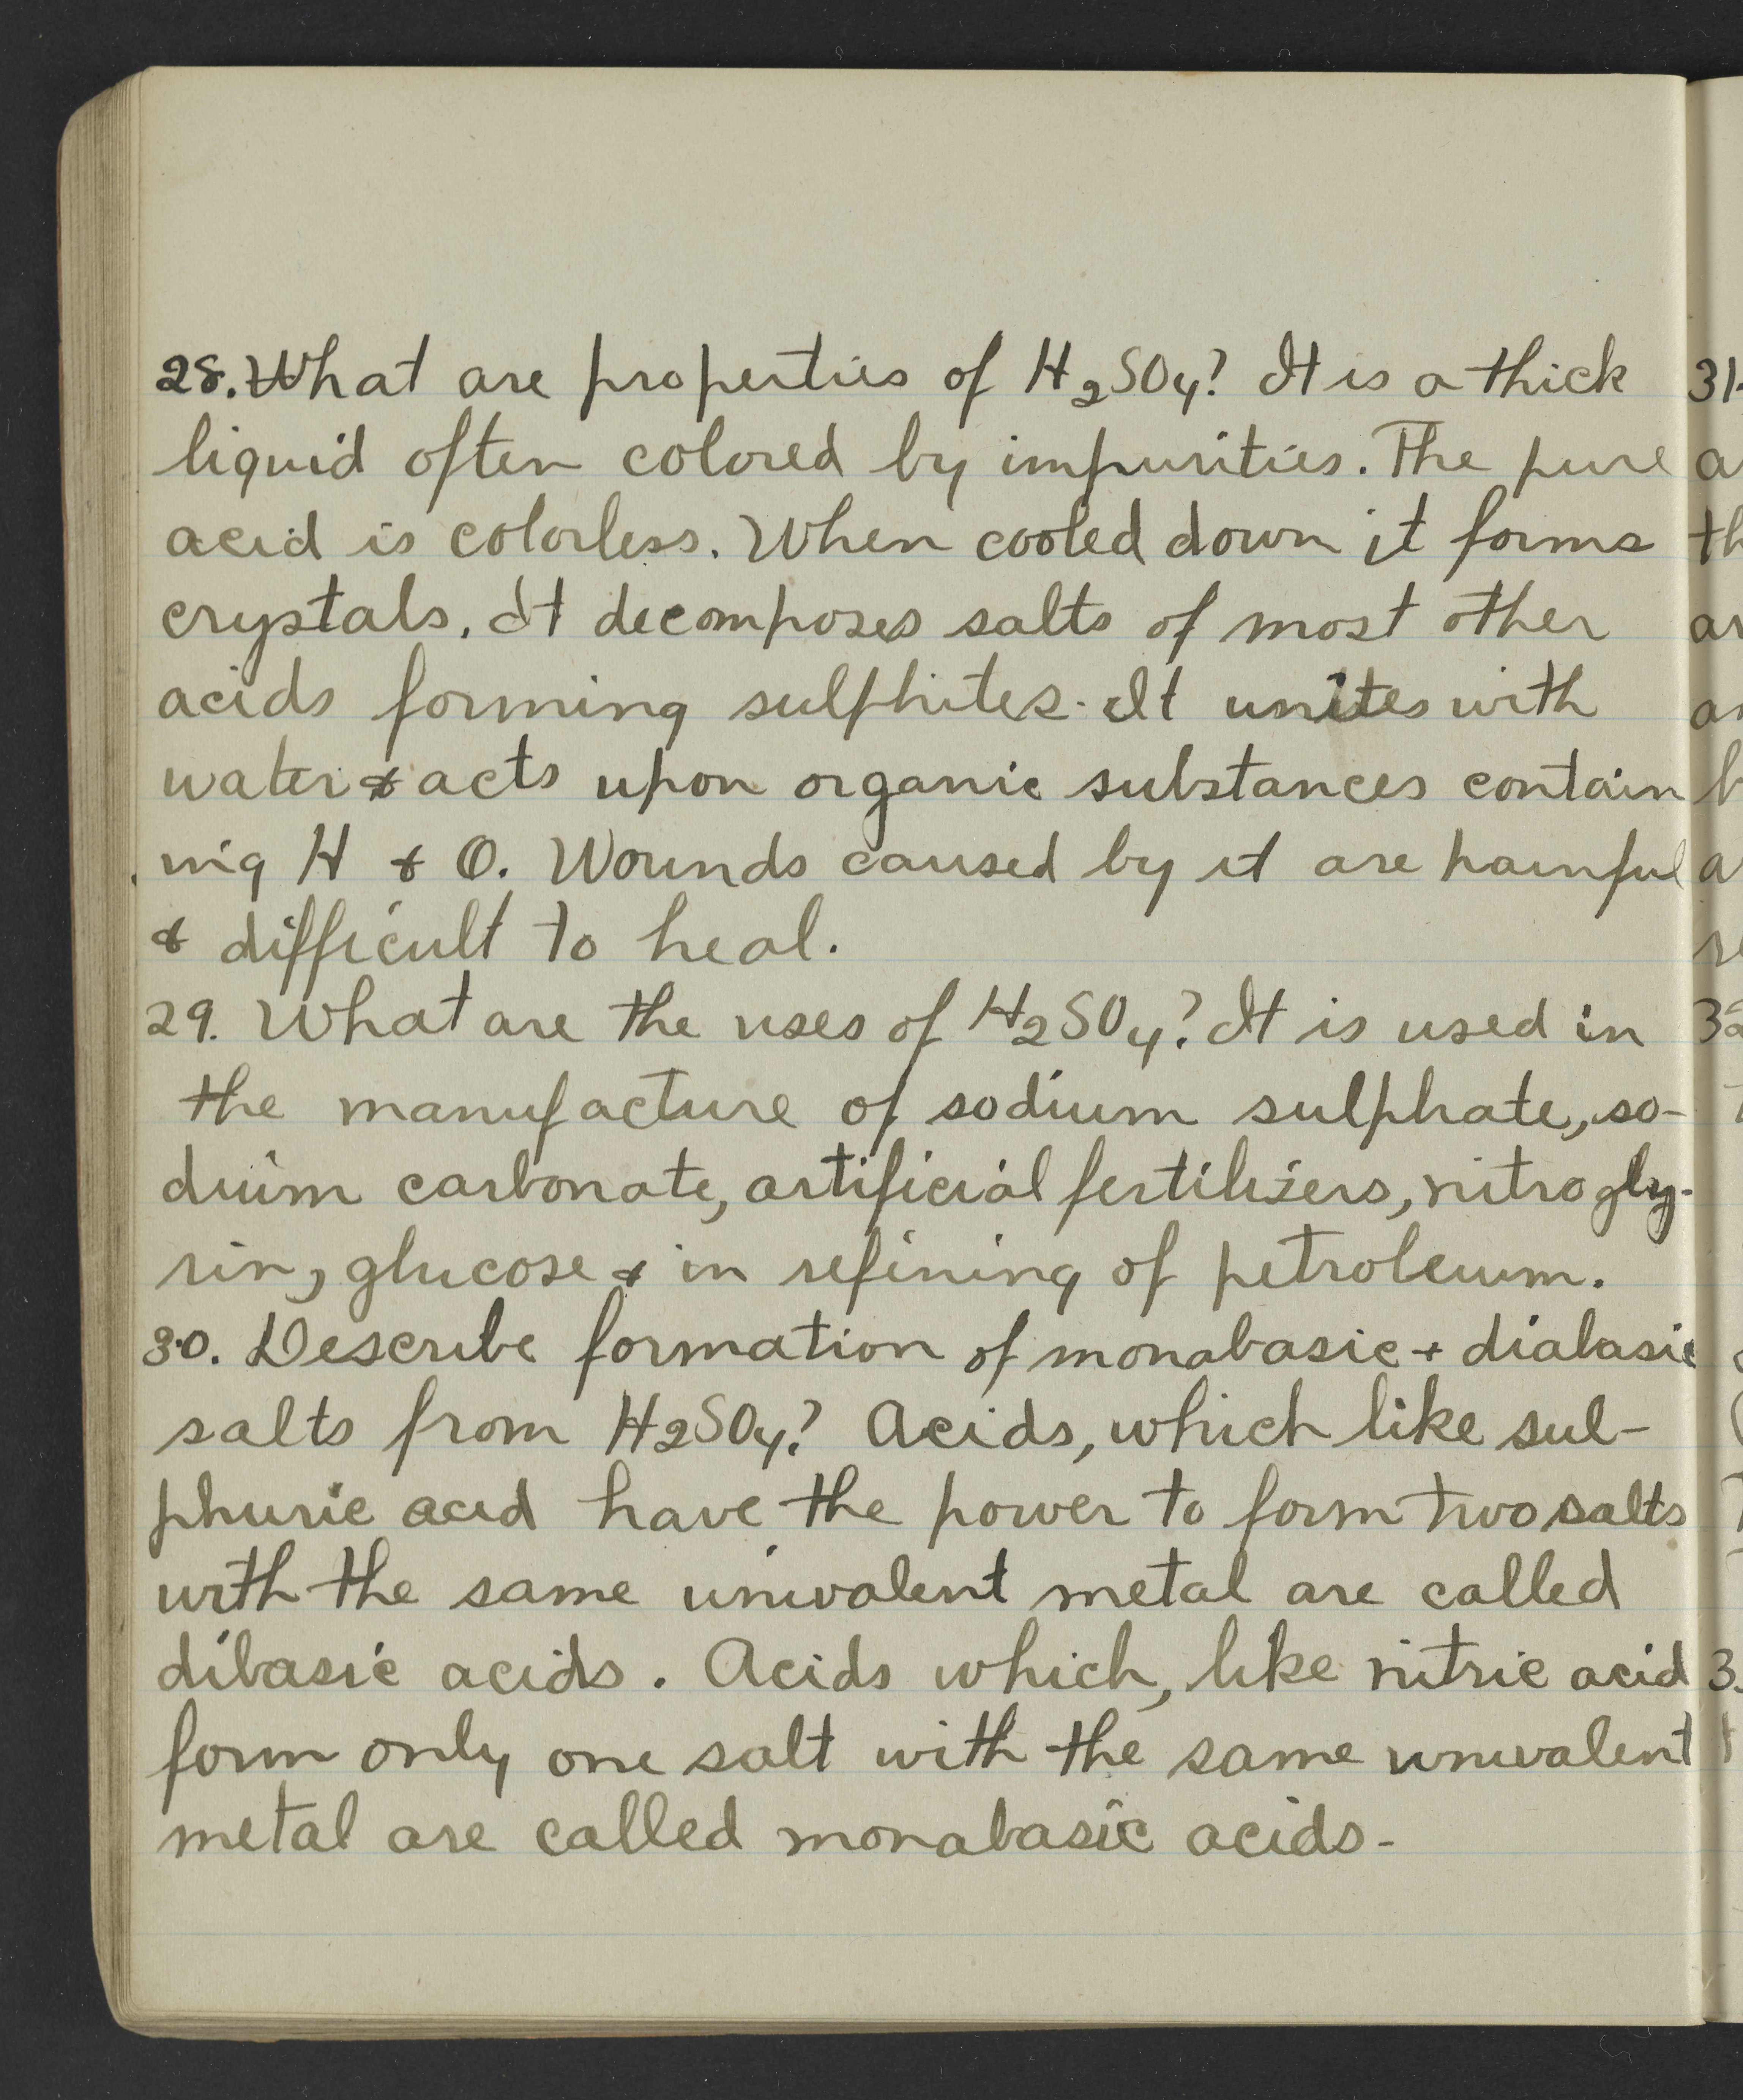 28. What are properties of H2SO4? It is a thick
liquid often colored by impurities. The pure
acid is colorless. When cooled down it forms
crystals. It decomposes salts of most other
acids forming sulphites. It unites with
water & acts upon organic substances contain
ing H & O. Wounds caused by it are painful
& difficult to heal.
29. What are the uses of H2SO4? It is used in
the manufacture of sodium sulphate, so-
dium carbonate, artificial fertilizers, nitrogly-
rin, glucose & in refining of petroleum.
30. Describe formation of monabasic + diabasic
salts from H2SO4? Acids, which like sul-
phuric acid have the power to form two salts
with the same univalent metal are called
dibasic acids. Acids which, like nitric acid
form only one salt with the same univalent
metal are called monabasic acids-